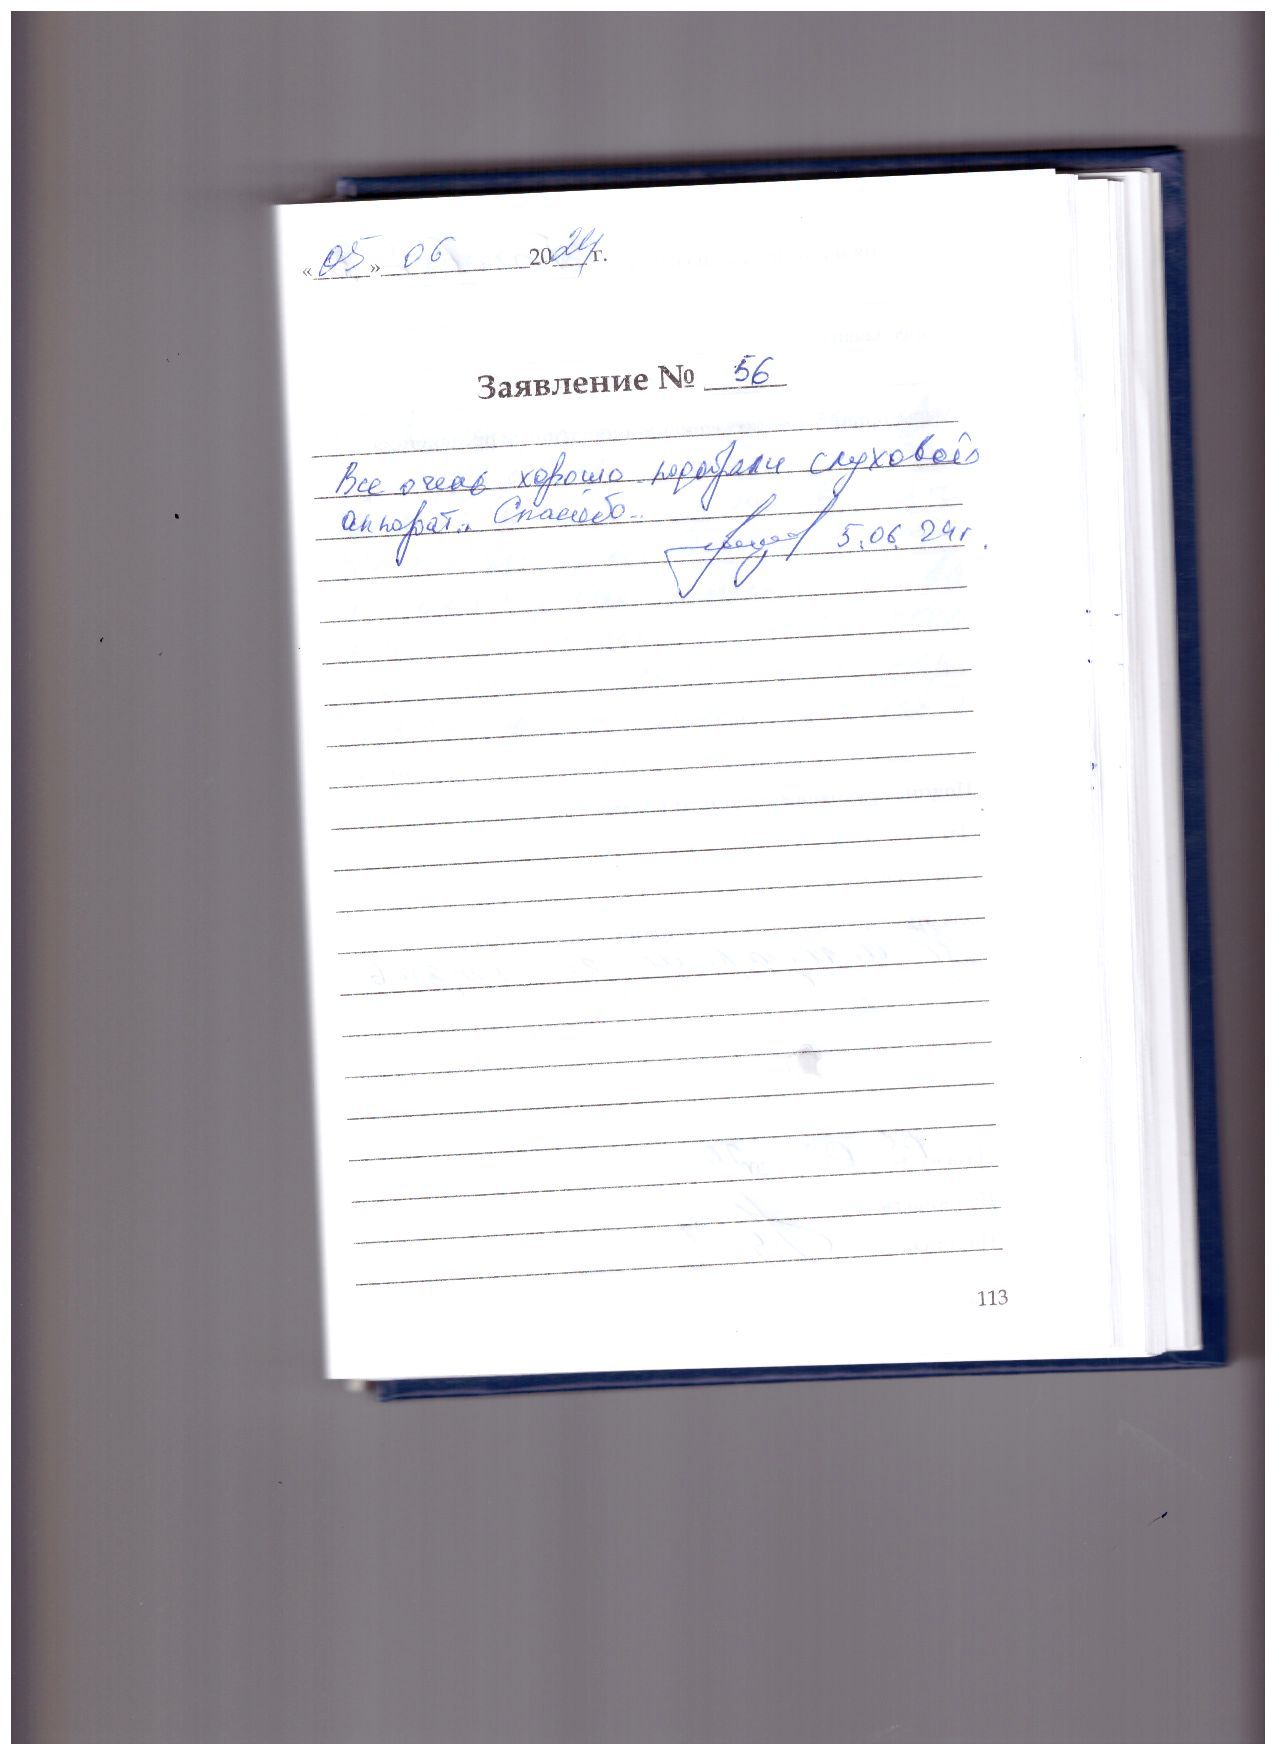 «05» 06 2024 г.
Заявление № 56
Все очень хорошо подобрали слуховой
аппарат.. Спасибо..
5.06.24г.
113